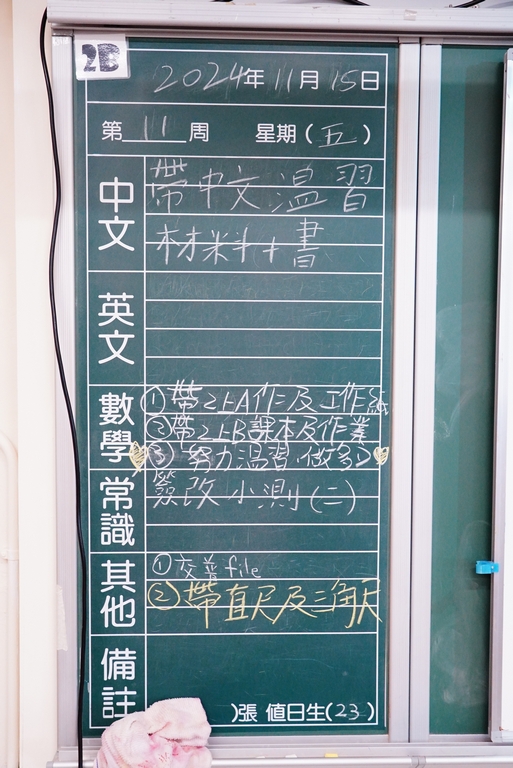 2B
2024年11月15日
第11周 星期(五)
中文
帶中文溫習
材料+書
英文
數學
①帶2上A作仁及工作紙
②帶2上B課本及作業
③努力溫習.做多D
常識
簽改小測(二)
其他
①交普file
②帶直尺及三角尺
備註
)張 值日生(23)